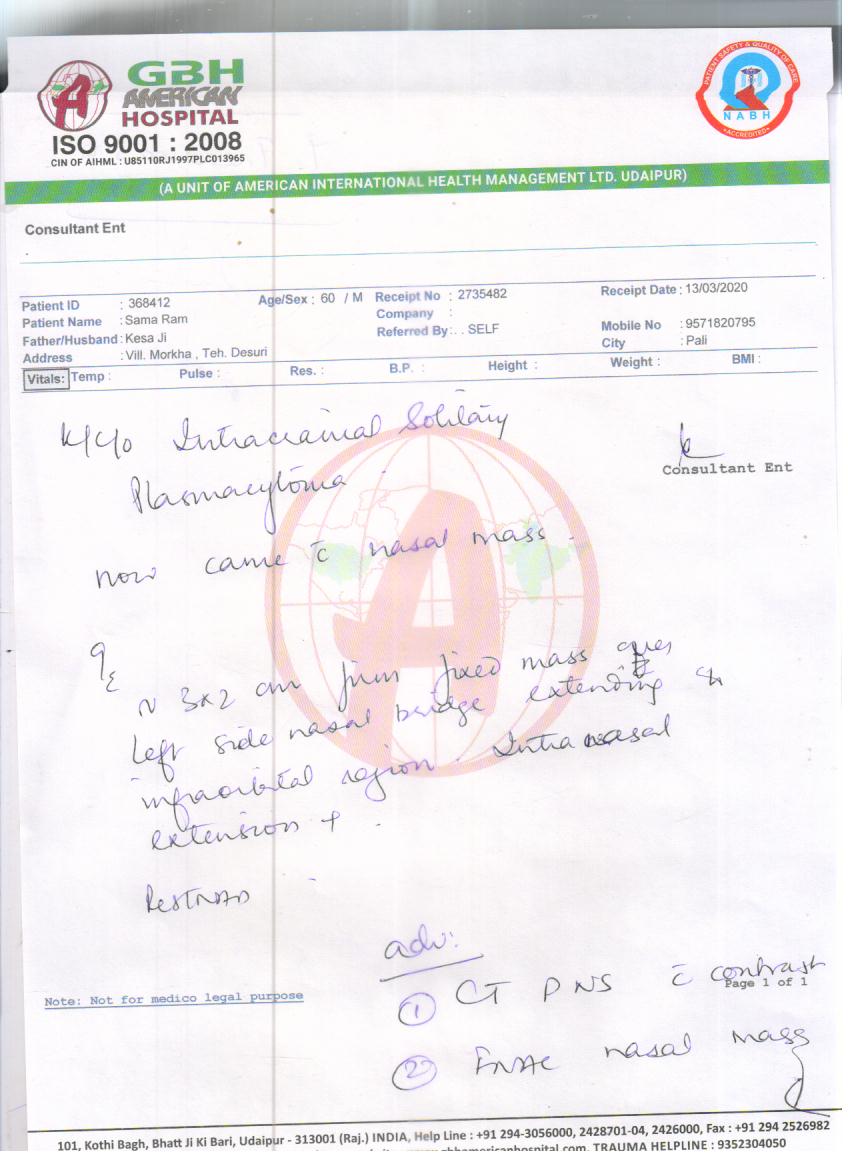 GBH
AMERICAN
HOSPITAL
ISO 9001 : 2008
CIN OF AIHML : U85110RJ1997PLC013965
PATIENT SAFETY & QUALITY OF CARE
NABH
ACCREDITED
(A UNIT OF AMERICAN INTERNATIONAL HEALTH MANAGEMENT LTD. UDAIPUR)
Consultant Ent
Patient ID : 368412 Age/Sex : 60 / M Receipt No : 2735482 Receipt Date : 13/03/2020
Patient Name : Sama Ram Company :
Father/Husband : Kesa Ji Referred By : . . SELF Mobile No : 9571820795
Address : Vill. Morkha , Teh. Desuri City : Pali
Vitals: Temp : Pulse : Res. : B.P. : Height : Weight : BMI :
K/C/O Intracranial Solitary
Plasmacytoma
Consultant Ent
now came c̄ nasal mass.
O/E
~ 3x2 cm firm fixed mass over
left side nasal bridge extending to
infraorbital region. Intranasal
extension + .
Rest NAD
adv:
① CT PNS c̄ contrast
Page 1 of 1
Note: Not for medico legal purpose
② FNAC nasal mass
101, Kothi Bagh, Bhatt Ji Ki Bari, Udaipur - 313001 (Raj.) INDIA, Help Line : +91 294-3056000, 2428701-04, 2426000, Fax : +91 294 2526982
gbhamericanhospital.com, TRAUMA HELPLINE : 9352304050